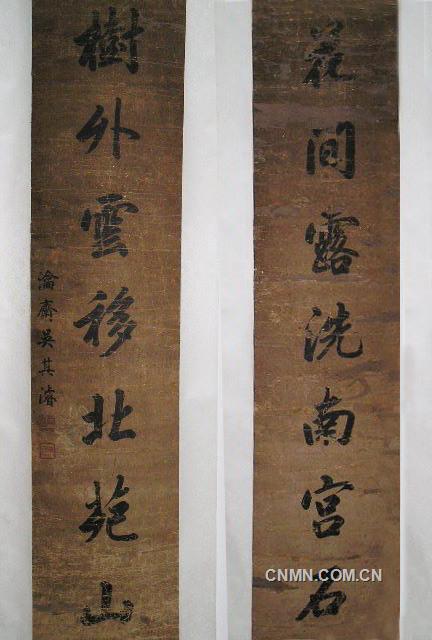 花間露洗南宫石
樹外雲移北苑山
瀹齋吳其濬
CNMN.COM.CN